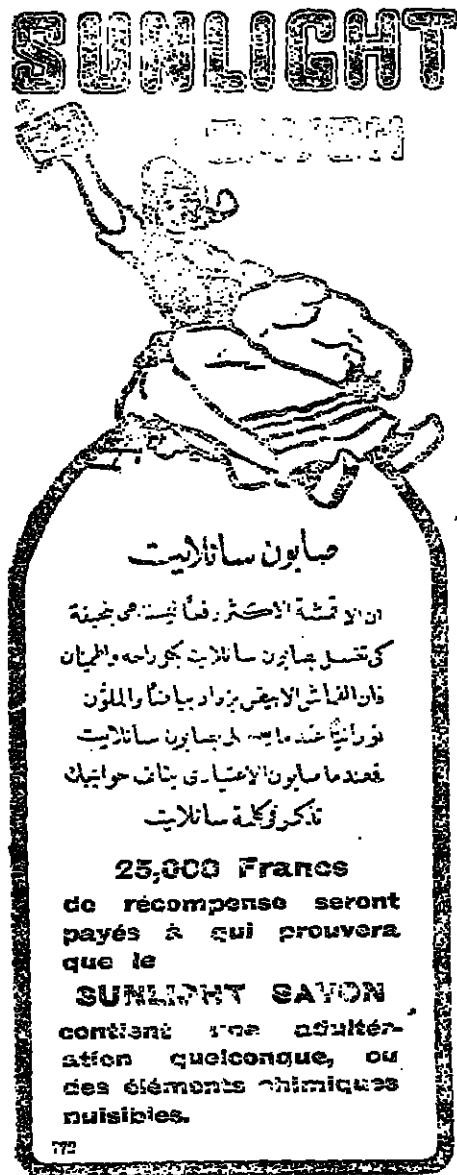 SUNLIGHT
SAVON
صابون سانلايت
ان الاقمشة الاكثر رفعاً ليست هى نحيفة
كى تغسل بصابون سانلايت بكل راحه واطمئنان
فان القماش الابيض يزداد بياضاً والملوّن
نورانيّاً عندما يغسل بصابون سانلايت
فعندما صابون الاعتيادى يتلف حوايجك
تذكر فى كلمة سانلايت
25,000 Francs
de récompense seront
payés à qui prouvera
que le
SUNLIGHT SAVON
contient une adultér-
ation quelconque, ou
des éléments chimiques
nuisibles.